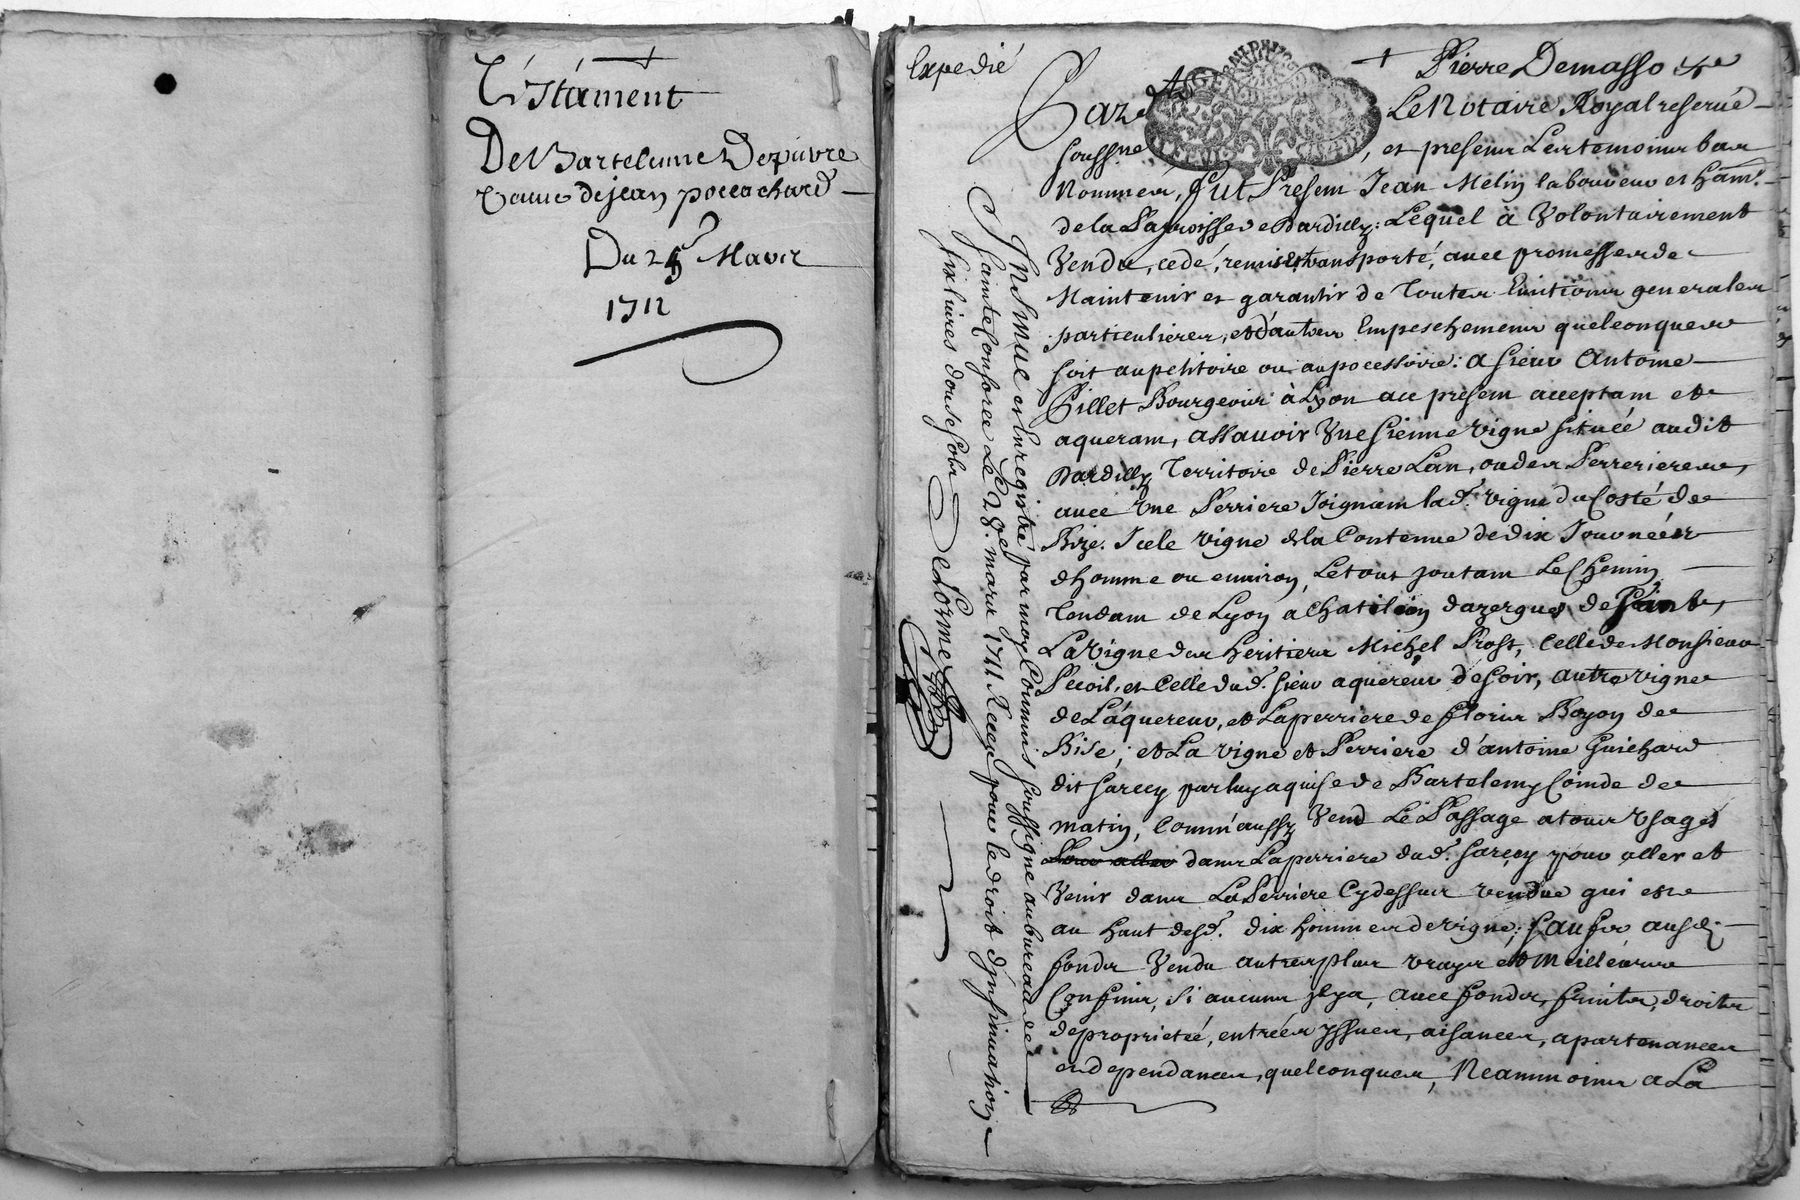 Téstament
De Bartelemie Depuvre
veuve de jean poccachard
Du 25e Mars
1712
Expedié
Pierre Demasso
Pardt Le Notaire Royal reservé
soussne, et presens Les temoins bas
Nommés, fut Present Jean Melin laboureur et hant.
de la Parroisse de Dardilly: Lequel à Volontairement
Vendu, cedé, remis et transporté, avec promesses de
Maintenir et garantir de Toutes Evitions generales
particulieres, et d'autres Empeschemens quelconques
soit au petitoire ou au pocessoire: a sieur Antoine
Pillet Bourgeois à Lyon ace present acceptant et
aquerant, assavoir Une sienne vigne située audit
Dardilly Territoire de Pierre Lan, ou des Perrieres,
avec une Perriere Joignant lad. vigne du Costé de
Bize. Icele vigne de la Contenue de dix Journées
d'homme ou environ, Le tout joutant Le Chemin
Tendant de Lyon à Chatillion dazergues de
La vigne des heritiers Michel Prost, Celle de Monsieur
Pecoil, et Celle dud. sieur aquereur de soir, autre vigne
de L'aquereur, et La perriere de Floris Boyon de
Bise; et La vigne et Perriere d'antoine Guichard
dit sarecy par luy aquise de Bartelemy Comde de
matin, Comm'aussy Vend Le Passage a tous Usages
Pour aller dans La perriere dud. sarecy pour aller et
Venir dans La Perriere Cydessus vendue qui est
au haut desd. dix hommes de vigne; sauf aud.
fonds Vendu autres plus vrays et Meilleurs
Confins, si aucuns jl y a, avec fonds, fruits, droits
de proprieté, entrées yssues, aisances, apartenances
et dependances, quelconques, Neanmoins a La
Insinué et Enregistré par moy Commis soussigné au bureau de
Sainte Consorce Le 28e. mars 1711 Receu pour le droit d'insinuation
six livres douse sols Delorme